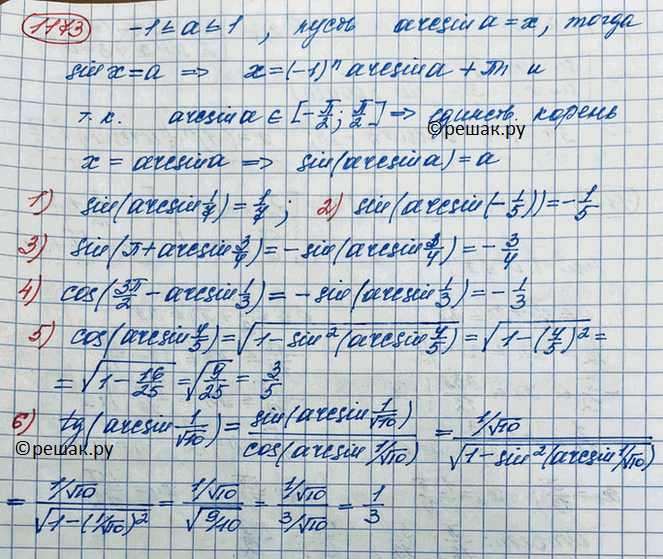 1173 -1 ≤ a ≤ 1, пусть arcsin a = x, тогда
sin x = a => x = (-1)ⁿ arcsin a + πn и
т.к. arcsin a ∈ [-π/2; π/2] => единств. корень
©решак.ру
x = arcsin a => sin(arcsin a) = a
1) sin(arcsin 1/7) = 1/7; 2) sin(arcsin(-1/5)) = -1/5
3) sin(π + arcsin 3/4) = -sin(arcsin 3/4) = -3/4
4) cos(3π/2 - arcsin 1/3) = -sin(arcsin 1/3) = -1/3
5) cos(arcsin 4/5) = √(1 - sin²(arcsin 4/5)) = √(1 - (4/5)²) =
= √(1 - 16/25) = √(9/25) = 3/5
6) tg(arcsin 1/√10) = sin(arcsin 1/√10)/cos(arcsin 1/√10) = (1/√10)/√(1 - sin²(arcsin 1/√10))
©решак.ру
= (1/√10)/√(1 - (1/√10)²) = (1/√10)/√(9/10) = (1/√10)/(3/√10) = 1/3